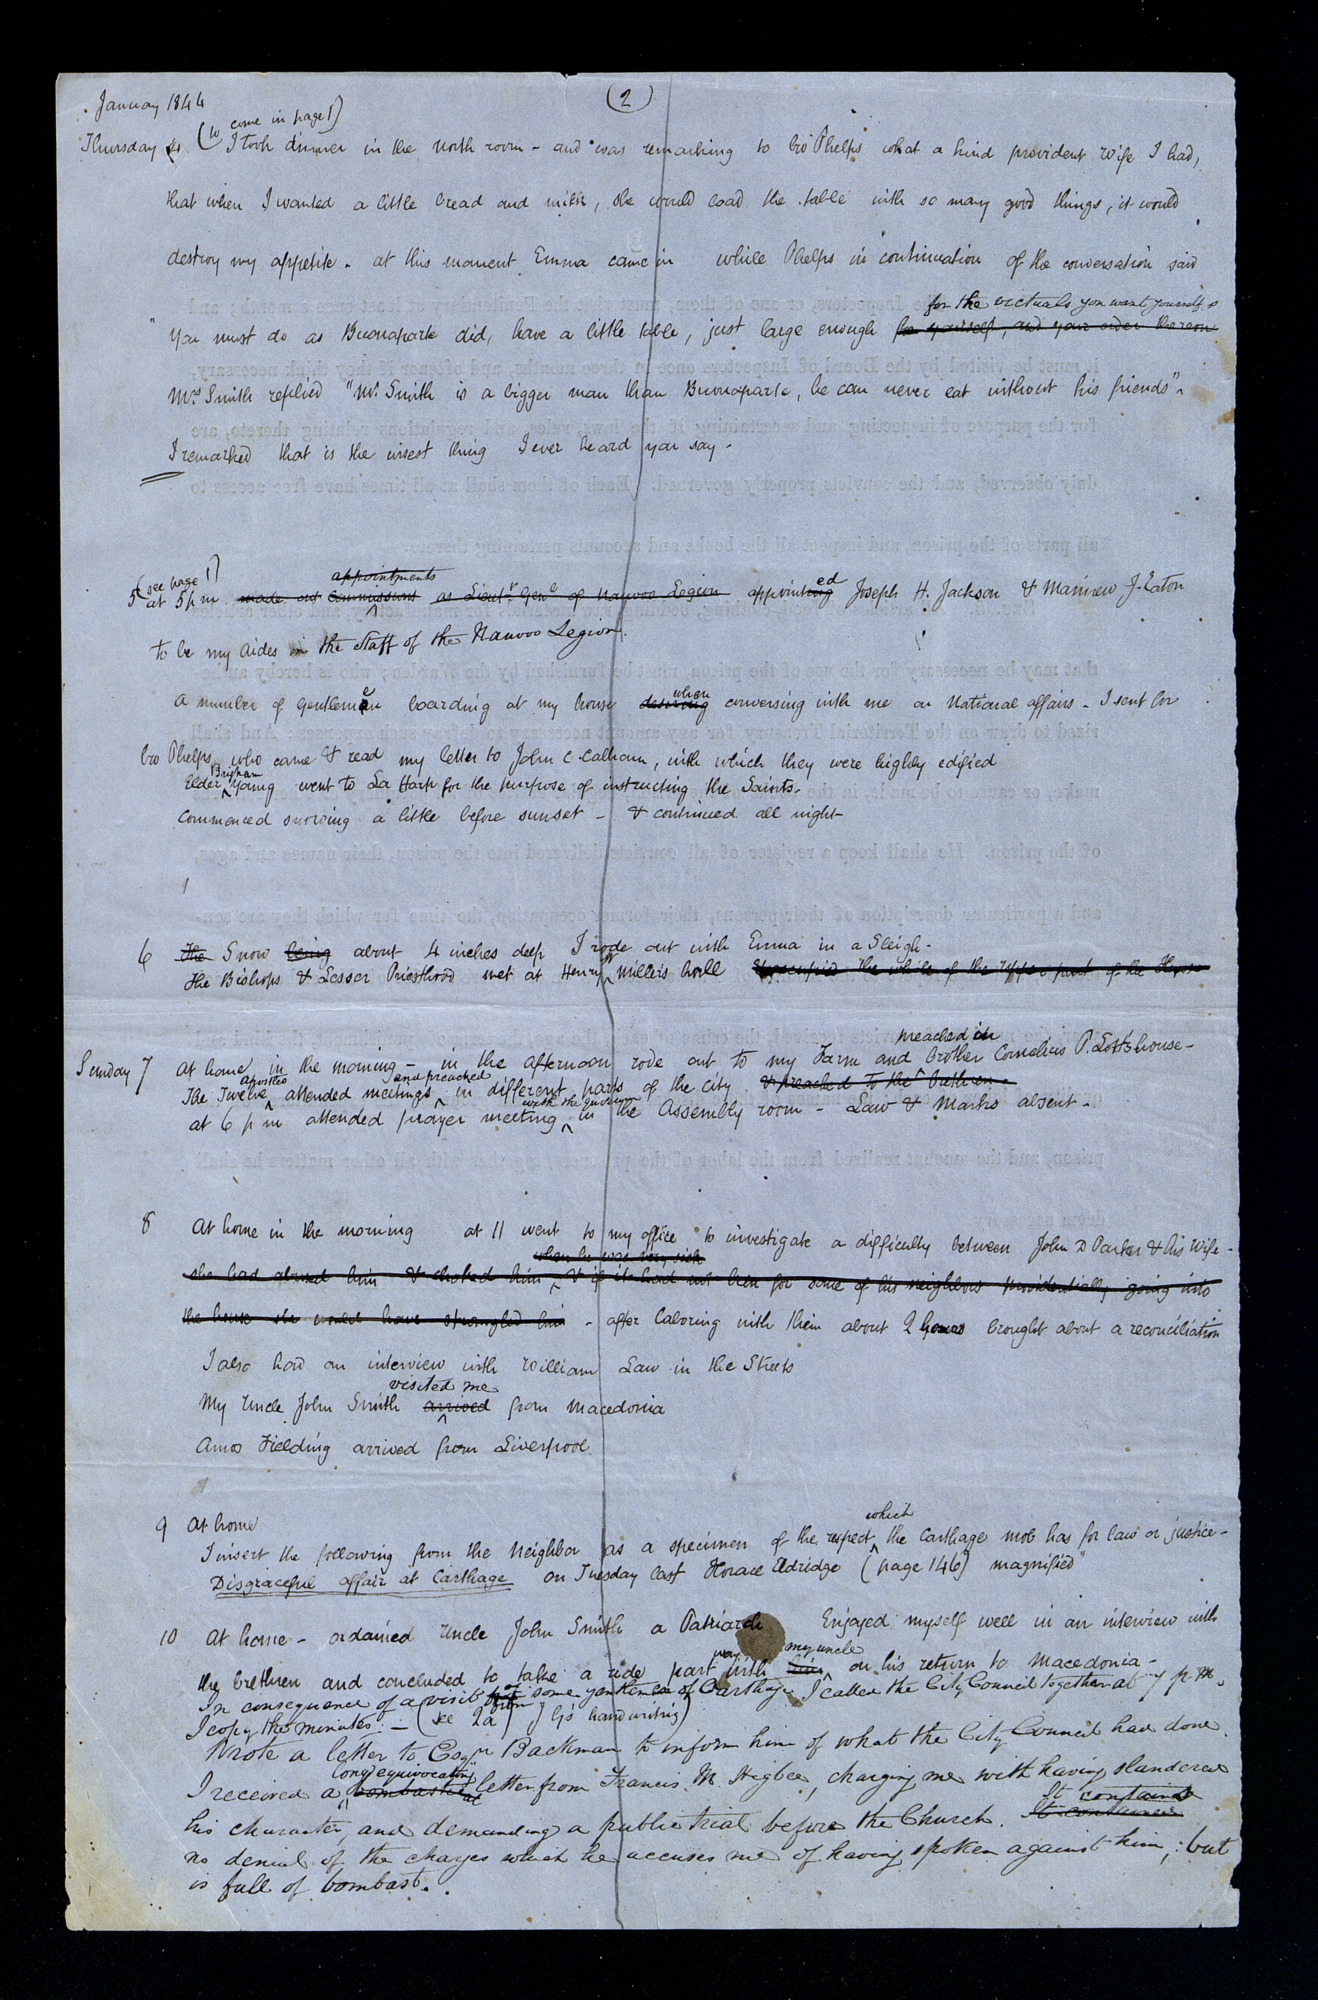 January 1844
(2)
(to come in page 1)
Thursday 4 I took dinner in the north room - and was remarking to bro Phelps what a kind provident wife I had,
that when I wanted a little bread and milk, she would load the table with so many good things, it would
destroy my appetite - at this moment Emma came in while Phelps in continuation of the conversation said
for the victuals you want yourself
"You must do as Buonaparte did, have a little table, just large enough for yourself, and your order thereon
Mrs Smith replied "Mr Smith is a bigger man than Buonaparte, he can never eat without his friends"-
I remarked that is the wisest thing I ever heard you say -
(see page 1)
appointments
5 at 5 p m made out Commissions as Lieut Genl of Nauvoo Legion appointinged Joseph H. Jackson & Marinew J. Eaton
to be my aides in the staff of the Nauvoo Legion.
when
a number of Gentlemen boarding at my house desiring conversing with me on National affairs - I sent for
bro Phelps, who came & read my letter to John C Calhoun, with which they were highly edified
Brigham
Elder Young went to La Harp for the purpose of instructing the Saints -
Commenced snowing a little before sunset - & continued all night -
6 The Snow being about 4 inches deep I rode out with Emma in a Sleigh -
W
The Bishops & Lesser Priesthood met at Henry Miller's hall the of the upper part of the House
preached in
Sunday 7 At home in the morning - in the afternoon rode out to my Farm and brother Cornelius P. Lott's house -
apostles and preached
The Twelve attended meetings in different parts of the city & preached to the brethren -
with the quorum
at 6 p m attended prayer meeting in the Assembly room - Law & Marks absent -
8 At home in the morning at 11 went to my office to investigate a difficulty between John D Parker & his wife -
when he was very sick
she had abused him & choked him & if it had not been for some of his neighbors providentially going into
the house she would have strangled him - after laboring with them about 2 hours brought about a reconciliation
I also had an interview with William Law in the Streets
visited me
My Uncle John Smith arrived from Macedonia
Amos Fielding arrived from Liverpool
9 At home
which
I insert the following from the Neighbor as a specimen of the respect the Carthage mob has for law or justice -
Disgraceful affair at Carthage on Tuesday last Horace Eldridge (page 146) magnified"
10 At home - ordained Uncle John Smith a Patriarch Enjoyed myself well in an interview with
way my uncle
the brethren and concluded to take a ride part with him on his return to Macedonia -
of
In consequence of a visit from some gentlemen of Carthage I called the City Council together at 7 p. m.
I copy the minutes: - (see 2a) J Gs handwriting)
Wrote a letter to Esqr Backman to inform him of what the City Council had done
long equivocating
I received a bombastical letter from Francis M. Higbee, charging me with having slandered
It contained
his character, and demanding a public trial before the Church. It contained
no denial of the charges which he accuses me of having spoken against him; but
is full of bombast.